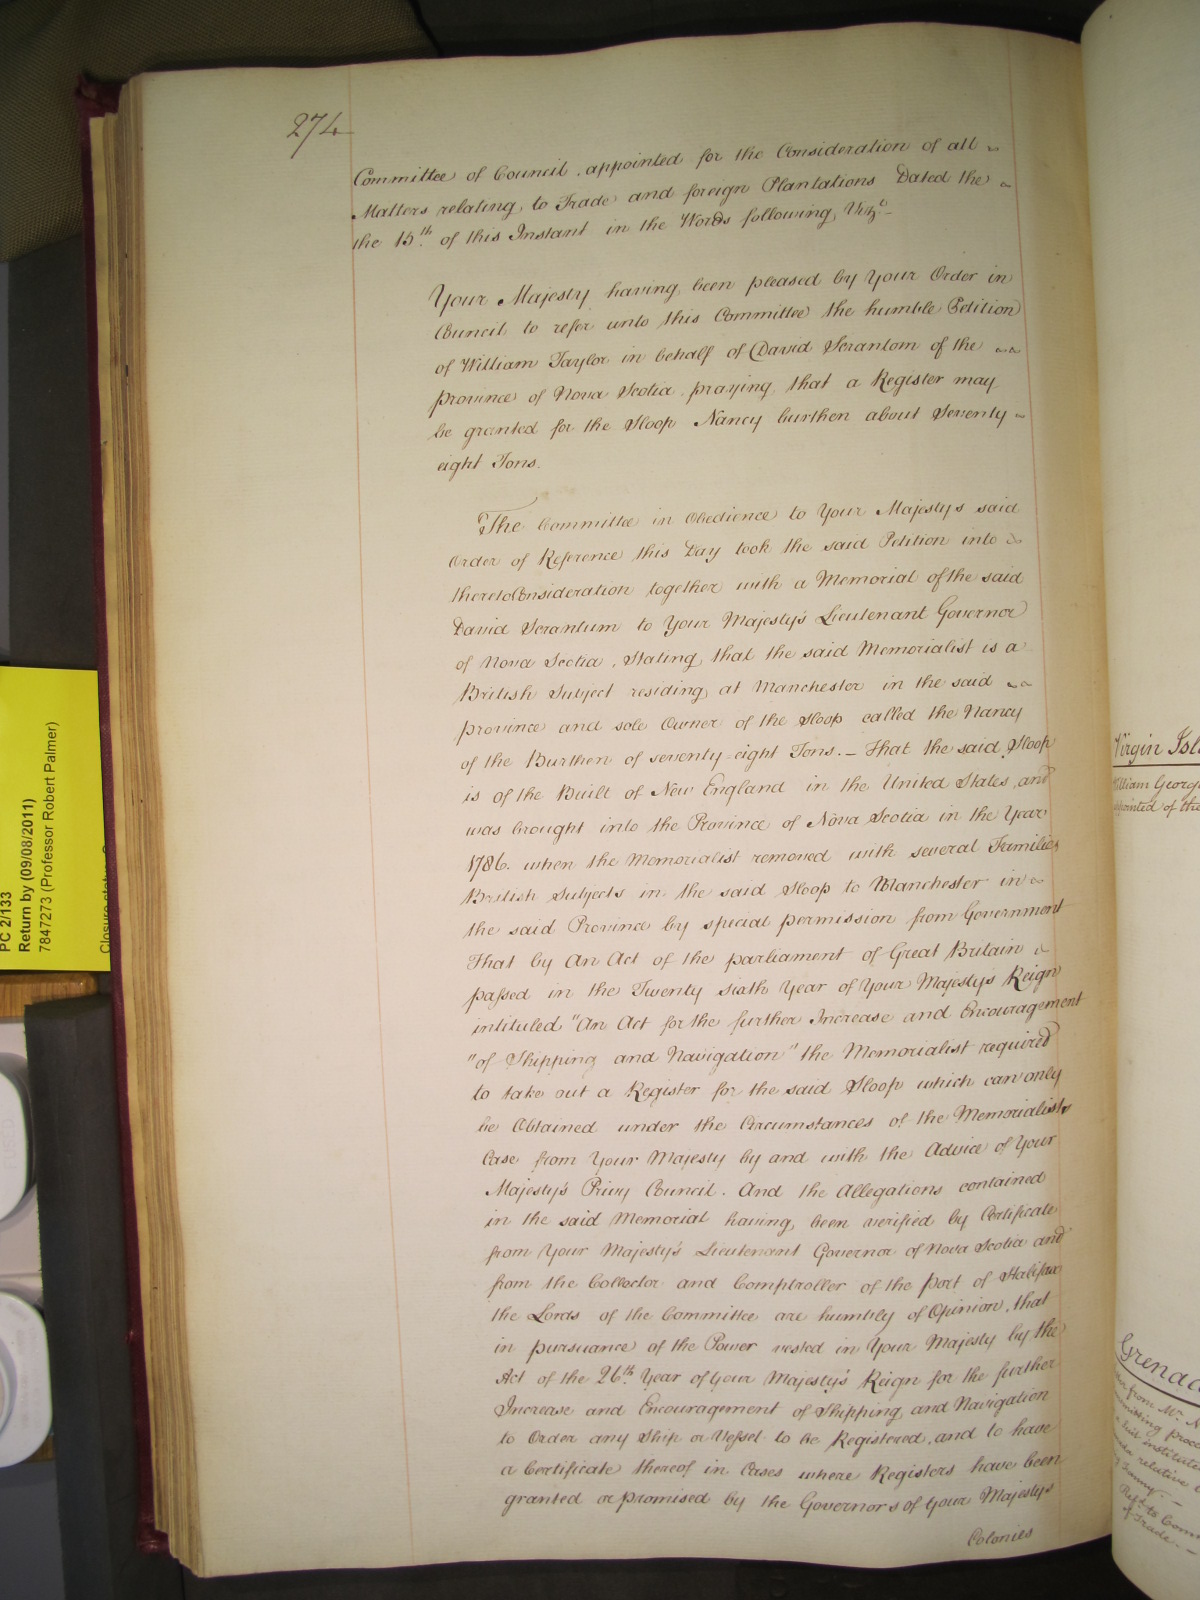 274
Committee of Council appointed for the Consideration of all
Matters relating to Trade and foreign Plantations Dated the
the 15th of this Instant in the Words following, Vizt.
Your Majesty having been pleased by Your Order in
Council to refer unto this Committee the humble Petition
of William Taylor in behalf of David Scrantom of the
province of Nova Scotia praying that a Register may
be granted for the Sloop Nancy burthen about Seventy
eight Tons.
The Committee in Obedience to Your Majestys said
Order of Reference this Day took the said Petition into
theretoConsideration together with a Memorial of the said
David Scrantum to Your Majesty's Lieutenant Governor
of Nova Scotia, Stating that the said Memorialist is a
British Subject residing at Manchester in the said
province and sole Owner of the Sloop called the Nancy
of the Burthen of seventy-eight Tons. – That the said Sloop
is of the Built of New England in the United States and
was brought into the Province of Nova Scotia in the Year
1786. when the Memorialist removed with several Families
British Subjects in the said Sloop to Manchester in
the said Province by special permission from Government
That by An Act of the parliament of Great Britain
passed in the Twenty sixth Year of Your Majesty's Reign
intituled "An Act for the further Increase and Encouragement
"of Shipping and Navigation" the Memorialist required
to take out a Register for the said Sloop which can only
be Obtained under the Circumstances of the Memorialists
Case from Your Majesty by and with the Advice of Your
Majesty's Privy Council. And the Allegations contained
in the said Memorial having been verified by Certificate
from Your Majesty's Lieutenant Governor of Nova Scotia and
from the Collector and Comptroller of the port of Halifax
the Lords of the Committee are humbly of Opinion, that
in pursuance of the Power vested in Your Majesty by the
Act of the 26th Year of Your Majesty's Reign for the further
Increase and Encouragement of Shipping and Navigation
to Order any Ship or Vessel to be Registered, and to have
a Certificate thereof in Cases where Registers have been
granted or promised by the Governors of Your Majestys
Colonies
PC 2/133
Return by (09/08/2011)
7847273 (Professor Robert Palmer)
Closure status
Virgin Isl
William Georg
of the
Grenad
from Mr.
proce
instituted
relative
Refd. to Comm
of Trade. –